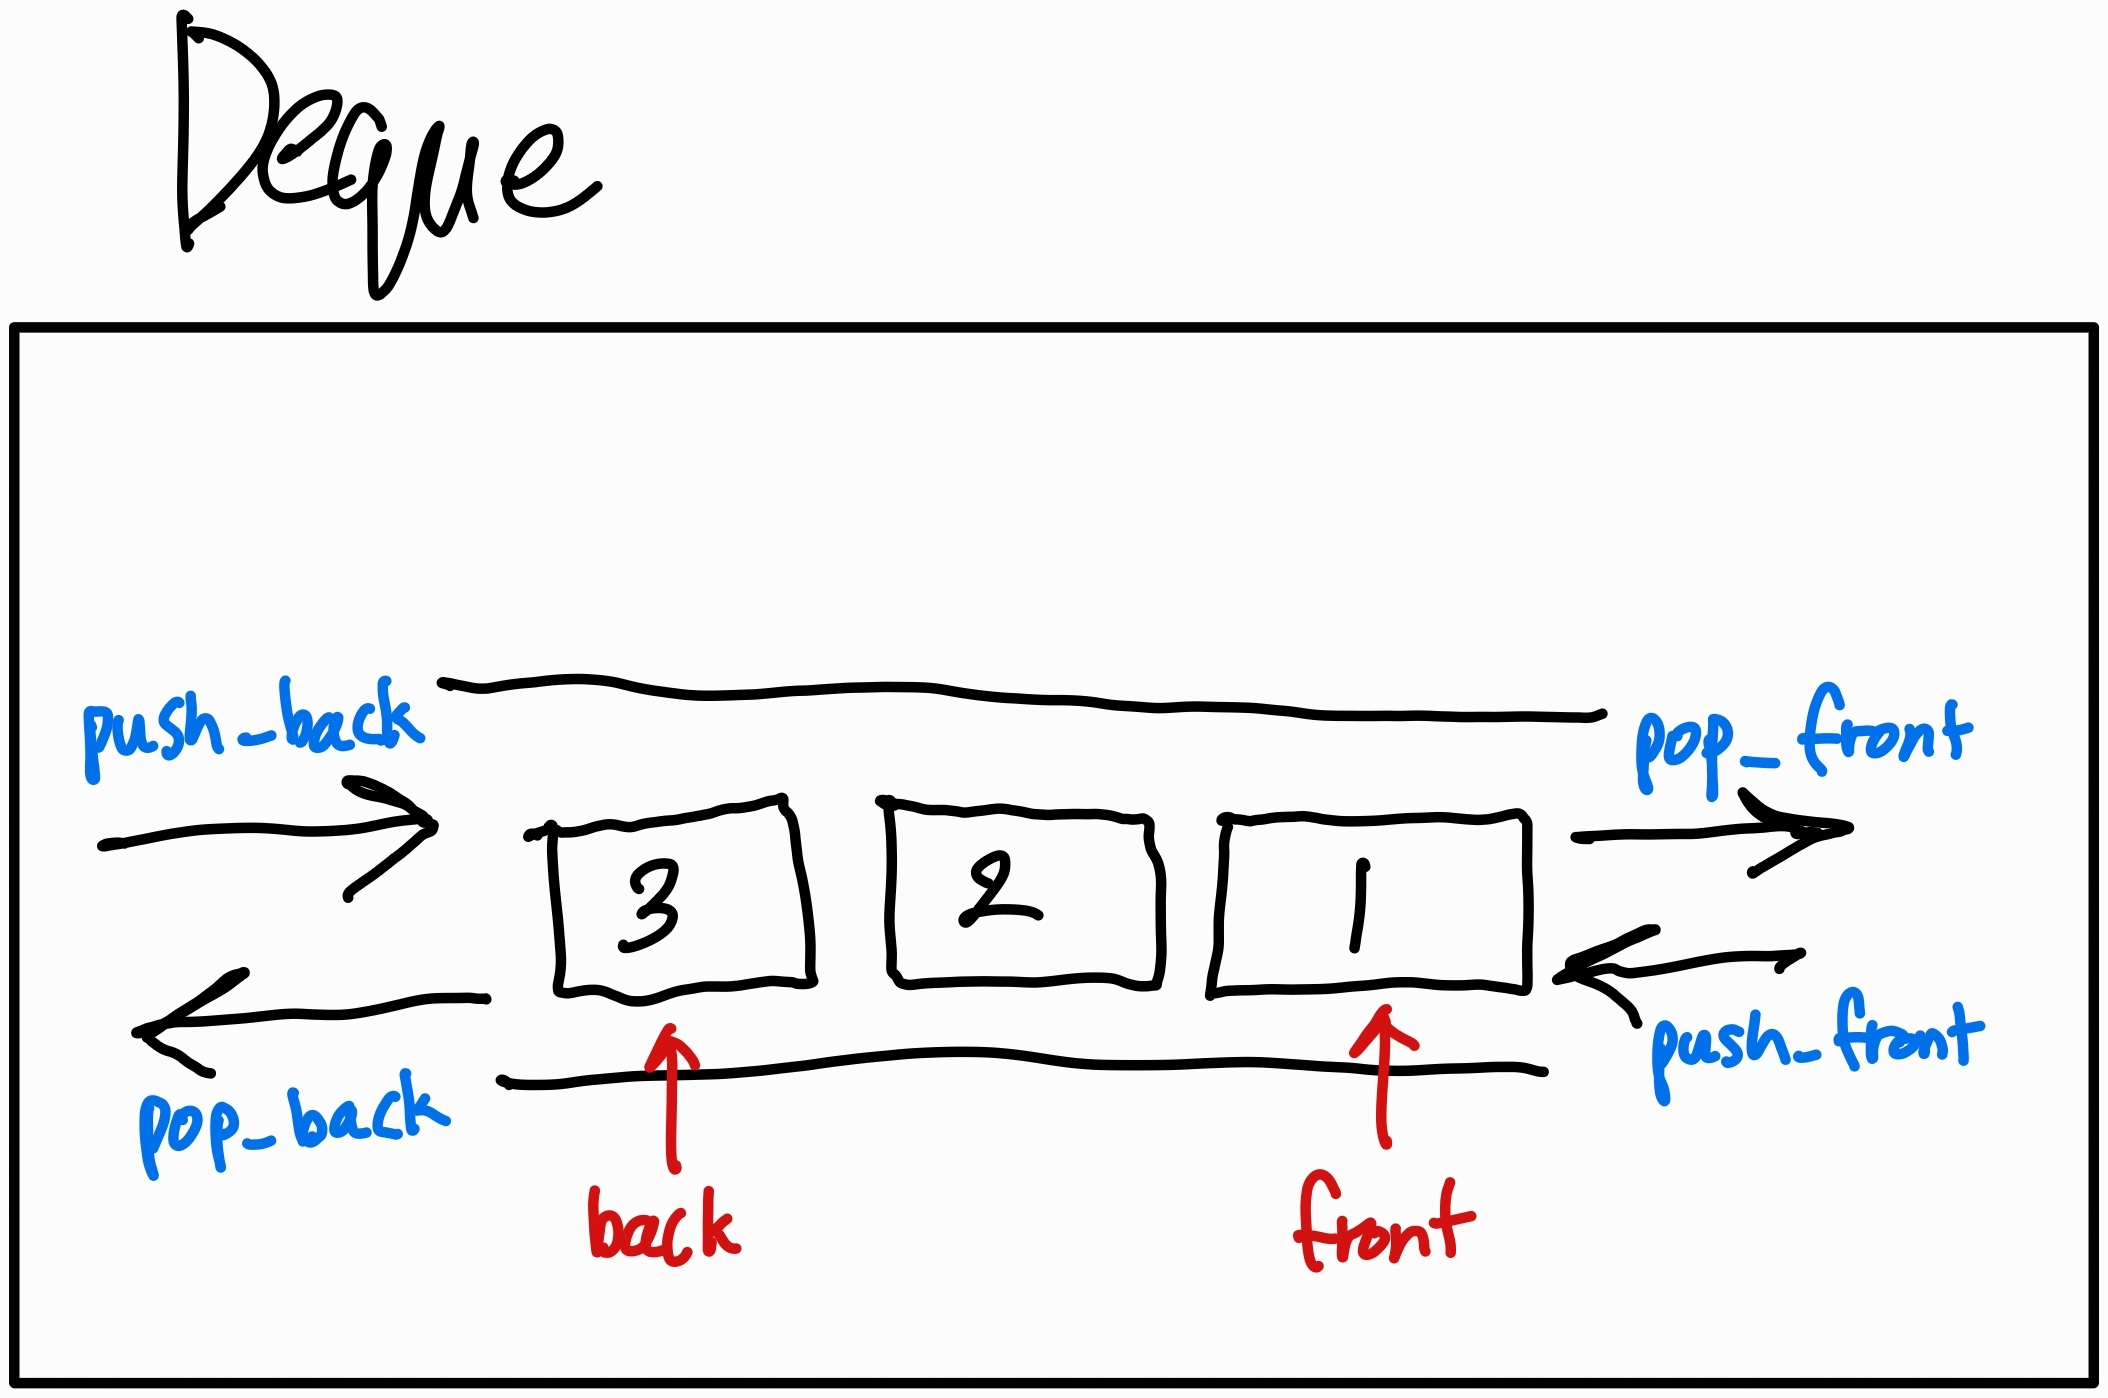 Deque
push_back
pop_front
3 2 1
pop_back
push_front
back
front